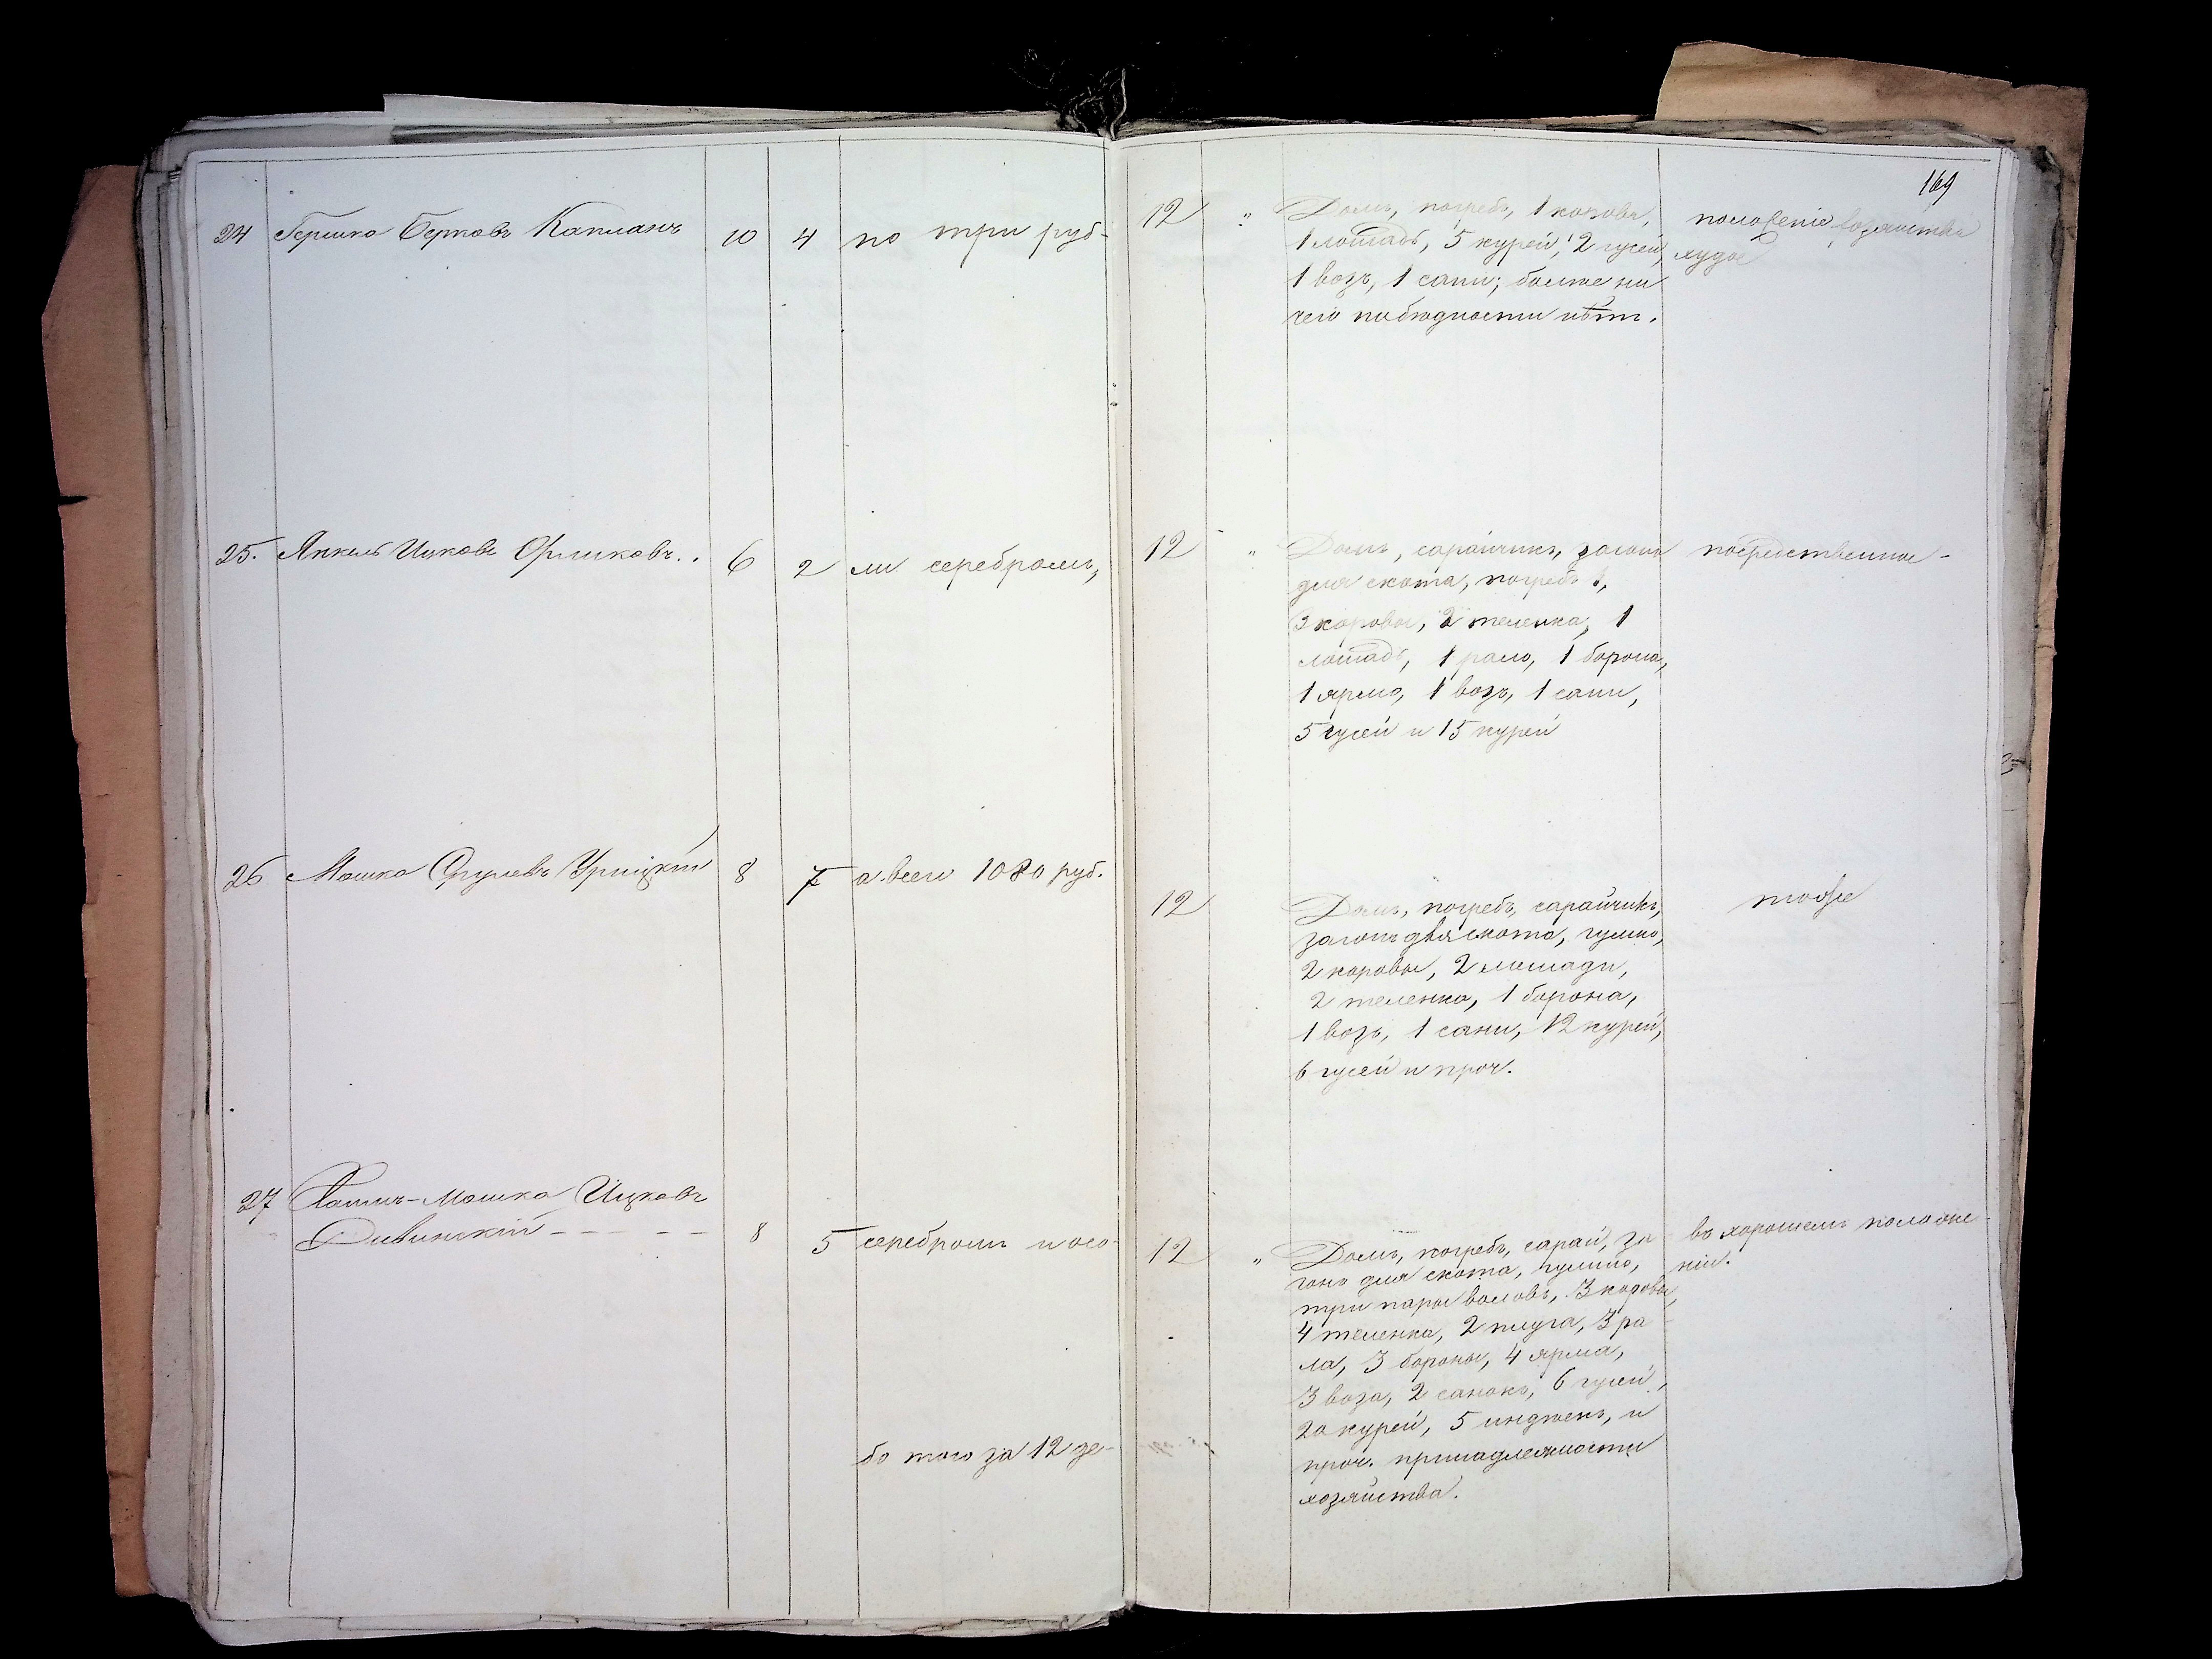 169
24 Гершко Берковъ Капланъ 10 4 по три руб-
12 „ Домъ, погребъ, 1 корова,
1 лошадь, 5 курей, 2 гусей,
1 возъ, 1 сани; болте ни
чего побюдности нѣтъ.
положеніе хозяйства
худое
25. Янкель Ицковъ Орликовъ.. 6 2 ли серебромъ,
12 „ Домъ, сарайчикъ, загонъ
для скота, погребъ 1,
3 коровы, 2 теленка, 1
лошадь, 1 рало, 1 борона,
1 ярмо, 1 возъ, 1 сани,
5 гусей и 15 курей
посредственное -
26 Мошко Урицкій 8 7 а всего 1080 руб.
12 Домъ, погребъ, сарайчикъ,
загонъ для скота, гумно,
2 коровы, 2 лошади,
2 теленка, 1 борона,
1 возъ, 1 сани, 12 курей,
6 гусей и проч.
тоже
27 Хаимъ-Мошко Ицковъ
Дивинскій - - - - - 8 5 серебромъ и осо-
бо того за 12 де-
12 „ Домъ, погребъ, сарай, за
гонъ для скота, гумно,
три пары воловъ, 3 коровы,
4 теленка, 2 плуга, 3 ра-
ла, 3 бороны, 4 ярма,
3 воза, 2 санокъ, 6 гусей,
20 курей, 5 индюкъ, и
проч. принадлежности
хозяйства.
въ хорошемъ положе-
ніи.